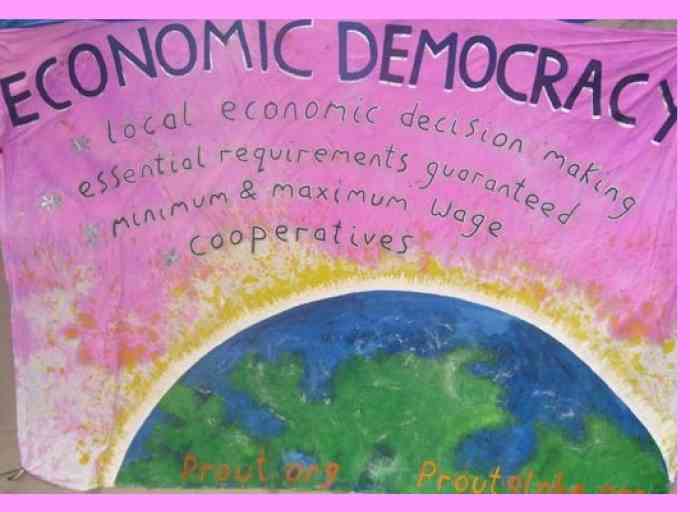 ECONOMIC DEMOCRACY
local economic decision making
essential requirements guaranteed
minimum & maximum wage
cooperatives
Prout.org